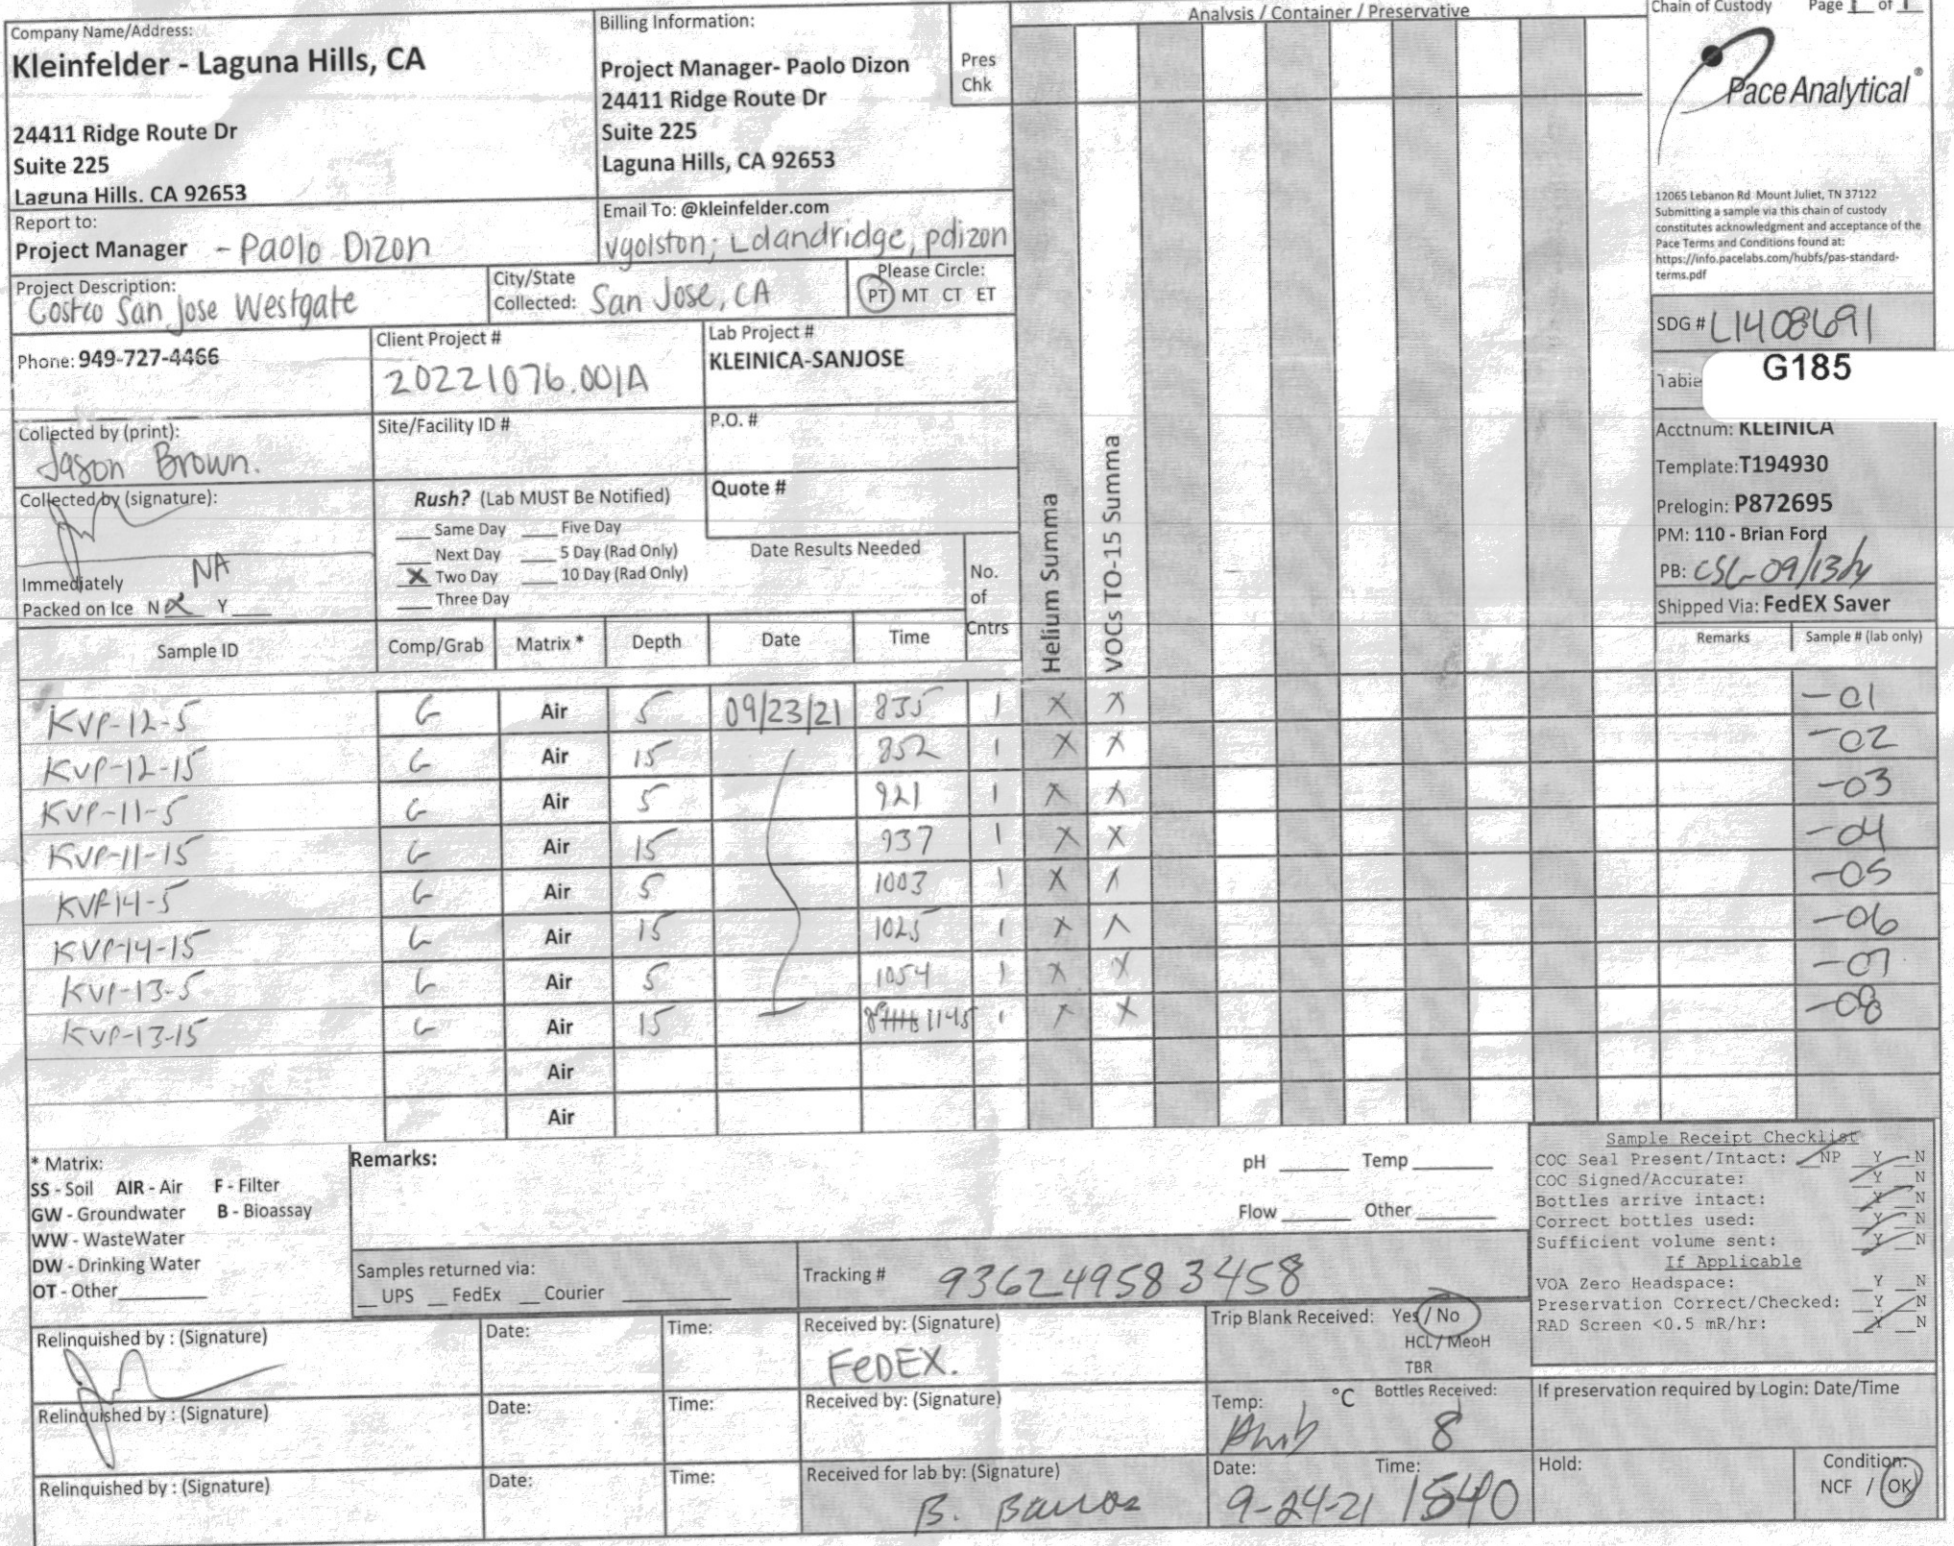 Company Name/Address:
Kleinfelder - Laguna Hills, CA
24411 Ridge Route Dr
Suite 225
Laguna Hills, CA 92653
Billing Information:
Project Manager- Paolo Dizon
24411 Ridge Route Dr
Suite 225
Laguna Hills, CA 92653
Pres
Chk
Analysis / Container / Preservative
Chain of Custody Page 1 of 1
Pace Analytical®
12065 Lebanon Rd Mount Juliet, TN 37122
Submitting a sample via this chain of custody
constitutes acknowledgment and acceptance of the
Pace Terms and Conditions found at:
https://info.pacelabs.com/hubfs/pas-standard-
terms.pdf
Report to:
Project Manager - Paolo Dizon
Email To: @kleinfelder.com
vgolston; Ldandridge, pdizon
Project Description:
Costco San Jose Westgate
City/State
Collected: San Jose, CA
Please Circle:
PT MT CT ET
SDG # L1408691
Table
G185
Phone: 949-727-4466
Client Project #
20221076.001A
Lab Project #
KLEINICA-SANJOSE
Collected by (print):
Jason Brown.
Site/Facility ID #
P.O. #
Acctnum: KLEINICA
Template:T194930
Prelogin: P872695
PM: 110 - Brian Ford
PB:
Shipped Via: FedEX Saver
Collected by (signature):
Immediately NA
Packed on Ice N X Y
Rush? (Lab MUST Be Notified)
Same Day Five Day
Next Day 5 Day (Rad Only)
X Two Day 10 Day (Rad Only)
Three Day
Quote #
Date Results Needed
No.
of
Cntrs
Helium Summa
VOCs TO-15 Summa
Remarks Sample # (lab only)
Sample ID Comp/Grab Matrix * Depth Date Time
KVP-12-5 G Air 5 09/23/21 835 1 X X -01
KVP-12-15 G Air 15 852 1 X X -02
KVP-11-5 G Air 5 921 1 X X -03
KVP-11-15 G Air 15 937 1 X X -04
KVP14-5 G Air 5 1003 1 X X -05
KVP-14-15 G Air 15 1025 1 X X -06
KVP-13-5 G Air 5 1054 1 X X -07
KVP-13-15 G Air 15 1145 1 X X -08
Air
Air
* Matrix:
SS - Soil AIR - Air F - Filter
GW - Groundwater B - Bioassay
WW - WasteWater
DW - Drinking Water
OT - Other
Remarks:
pH Temp
Flow Other
Sample Receipt Checklist
COC Seal Present/Intact: NP Y N
COC Signed/Accurate: Y N
Bottles arrive intact: Y N
Correct bottles used: Y N
Sufficient volume sent: Y N
If Applicable
VOA Zero Headspace: Y N
Preservation Correct/Checked: Y N
RAD Screen <0.5 mR/hr: Y N
Samples returned via:
UPS FedEx Courier
Tracking # 936249583458
Relinquished by : (Signature)
Date:
Time:
Received by: (Signature)
FeDEX.
Trip Blank Received: Yes / No
HCL / MeoH
TBR
Relinquished by : (Signature)
Date:
Time:
Received by: (Signature)
Temp: °C Bottles Received:
Amb 8
If preservation required by Login: Date/Time
Relinquished by : (Signature)
Date:
Time:
Received for lab by: (Signature)
B.
Date: Time:
9-24-21 1540
Hold:
Condition:
NCF / OK